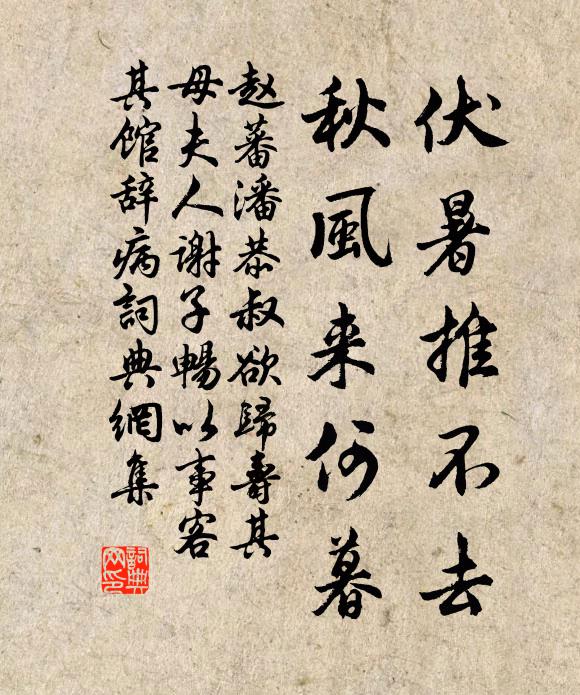 伏暑推不去
秋風来何暮
赵蕃潘恭叔欲歸壽其
母夫人謝子暢以事客
其馆辞病詞典網集
詞典网印